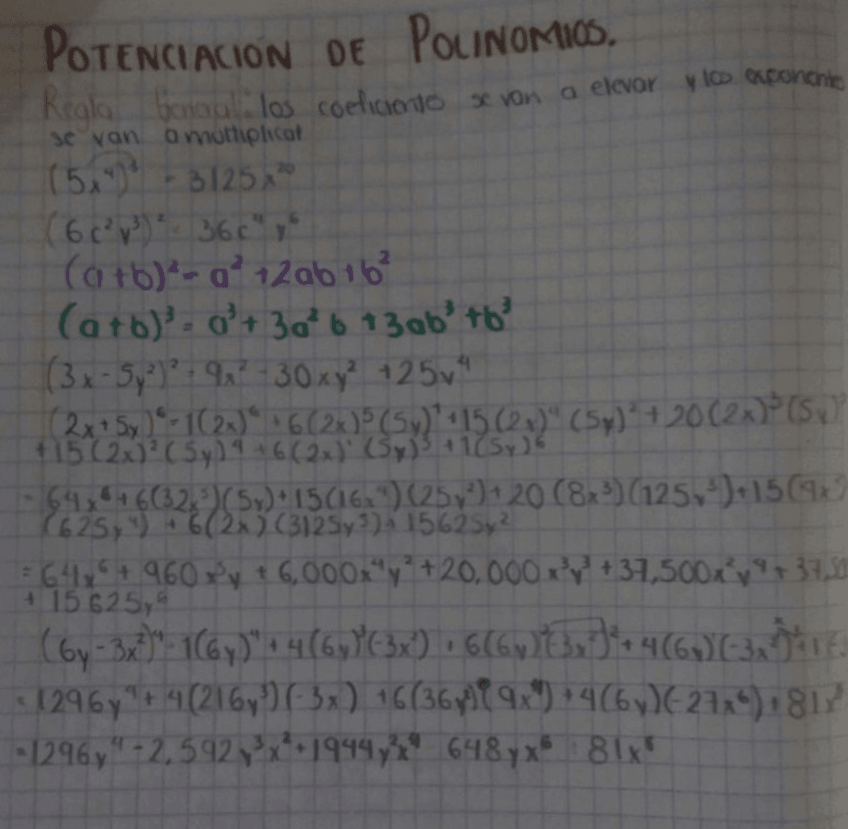 POTENCIACION DE POLINOMIOS.
Regla General: los coeficiento se van a elevar y los exponente
se van a multiplicar
(5x⁴) = 3125x²⁰
(6c²y³)² = 36c⁴y⁶
(a+b)² = a² + 2ab + b²
(a+b)³ = a³ + 3a²b + 3ab³ + b³
(3x - 5y²)² = 9x² - 30xy² + 25y⁴
(2x+5y)⁶ = 1(2x)⁶ + 6(2x)⁵(5y)¹ + 15(2x)⁴(5y)² + 20(2x)³(5y)
+ 15(2x)²(5y)⁴ + 6(2x)¹(5y)⁵ + 1(5y)⁶
= 64x⁶ + 6(32x⁵)(5y) + 15(16x⁴)(25y²) + 20(8x³)(125y³) + 15(4x²
(625y⁴) + 6(2x)(3125y⁵) + 15625y²
= 64x⁶ + 960x⁵y + 6,000x⁴y² + 20,000x³y³ + 37,500x²y⁴ + 37,50
+ 15625y⁶
(6y - 3x²)⁴ = 1(6y)⁴ + 4(6y)³(-3x²) + 6(6y)²(-3x²)² + 4(6y)(-3x²)³
= 1296y⁴ + 4(216y³)(-3x) + 6(36y²)(9x⁴) + 4(6y)(-27x⁶) + 81x⁸
= 1296y⁴ - 2,592y³x² + 1944y²x⁴ 648yx⁶ 81x⁸